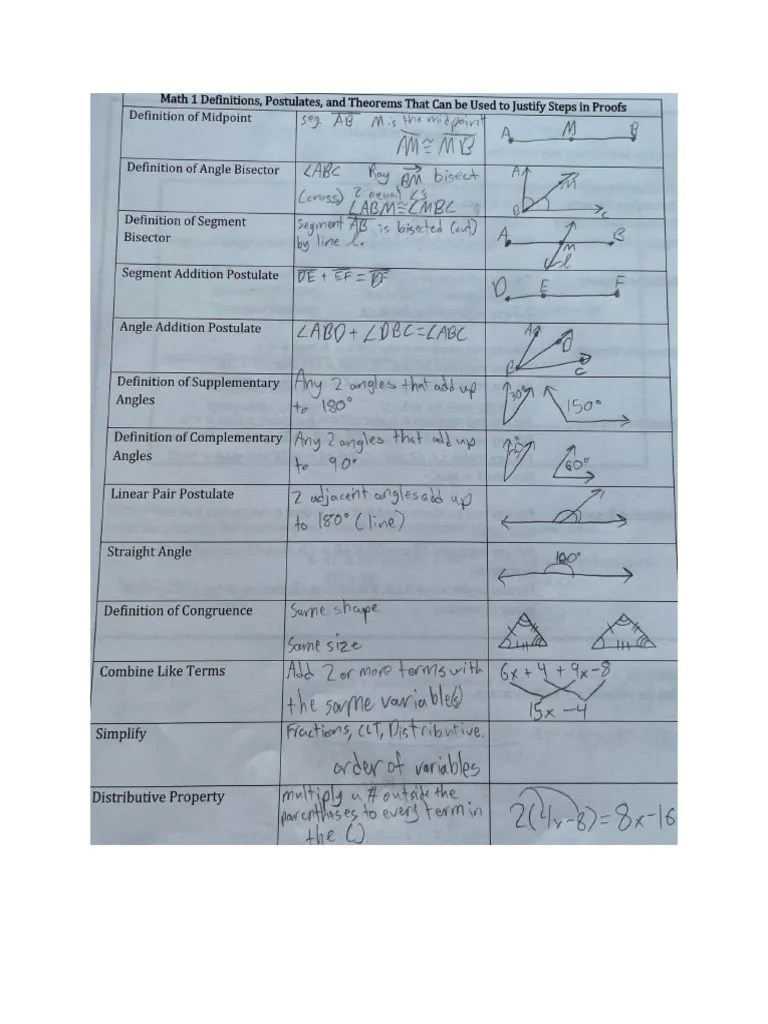 Math 1 Definitions, Postulates, and Theorems That Can be Used to Justify Steps in Proofs
Definition of Midpoint
seg. AB M is the midpoint
AM ≅ MB
A M B
Definition of Angle Bisector
∠ABC Ray BM bisect
(cross) 2 equal ∠s
∠ABM≅∠MBC
A
M
B C
Definition of Segment
Bisector
Segment AB is bisected (cut)
by line l.
A B
M
l
Segment Addition Postulate
DE + EF = DF
D E F
Angle Addition Postulate
∠ABD + ∠DBC = ∠ABC
A
D
B C
Definition of Supplementary
Angles
Any 2 angles that add up
to 180°
30°
150°
Definition of Complementary
Angles
Any 2 angles that add up
to 90°
60°
Linear Pair Postulate
2 adjacent angles add up
to 180° (line)
Straight Angle
180°
Definition of Congruence
Same shape
Same size
Combine Like Terms
Add 2 or more terms with
the same variable(s)
6x + 4 + 9x - 8
15x - 4
Simplify
Fractions, CLT, Distributive.
order of variables
Distributive Property
multiply a # outside the
parenthises to every term in
the ().
2(4x-8) = 8x-16